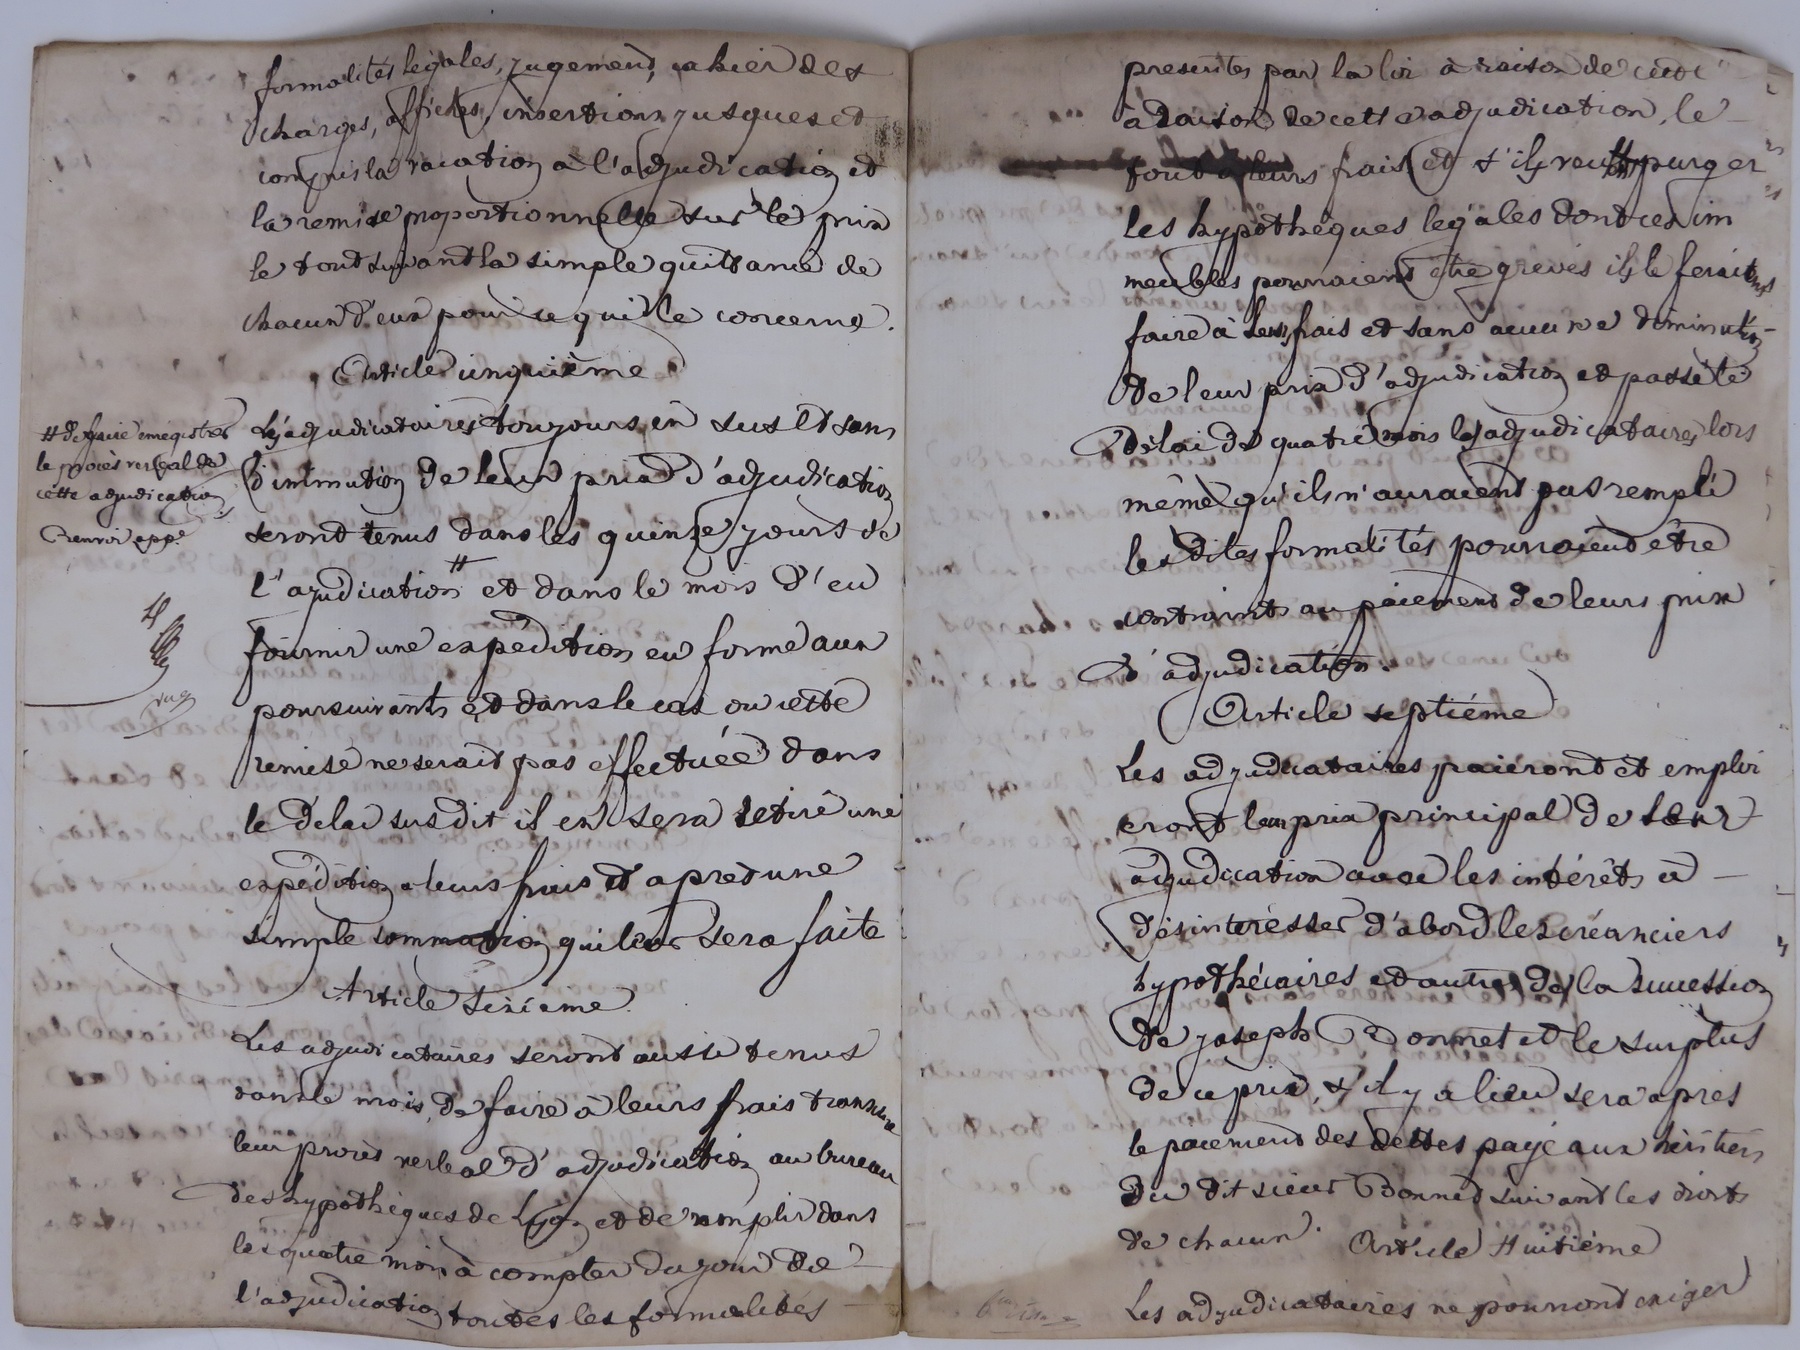 formalités légales, jugement, cahier des
charges, affiches, insertions jusques et
compris la vacation à l'adjudication et
la remise proportionnelle sur le prix
le tout suivant la simple quittance de
chacun d'eux pour ce qui le concerne.
Article cinquième
Les adjudicataires toujours en sus et sans
diminution de leur prix d'adjudication
seront tenus dans les quinze jours de
l'ajudication # et dans le mois d'en
fournir une expedition en forme aux
poursuivants et dans le cas ou cette
remise ne serait pas effectuée dans
le délai susdit il en sera retiré une
expédition a leurs frais et apres une
simple sommation qui leur sera faite
Article sixième.
Les adjudicataires seront aussi tenus
dans le mois, de faire à leurs frais transcrire
leur procès verbal d'adjudication au bureau
des hypothèques de Lyon et de remplir dans
les quatre mois à compter du jour de
l'adjudication toutes les formalités
# de faire enregistrer
le procès verbal de
cette adjudication
Renvoi app.é
prescrites par la loi à raison de cette
à raison de cette adjudication, le
tout à leurs frais et s'ils veulent purger
les hypothèques légales dont ces im
meubles pourraient être grevés ils le feraient
faire à leurs frais et sans aucune diminution
de leur prix d'adjudication et passé le
délai de quatre mois les adjudicataires lors
même qu'ils n'auraient pas rempli
les dites formalités pourraient être
contraints au paiement de leurs prix
d'adjudication.
Article septième
Les adjudicataires paieront et emploi
eront leur prix principal de leur
adjudication avec les intérêts à
désintéresser d'abord les créanciers
hypothécaires et autres de la succession
de joseph Bonnet et le surplus
de ce prix, s'il y a lieu sera apres
le paiement des dettes payé aux héritiers
du dit sieur Bonnet suivant les droits
de chacun. Article Huitième
Les adjudicataires ne pourront exiger